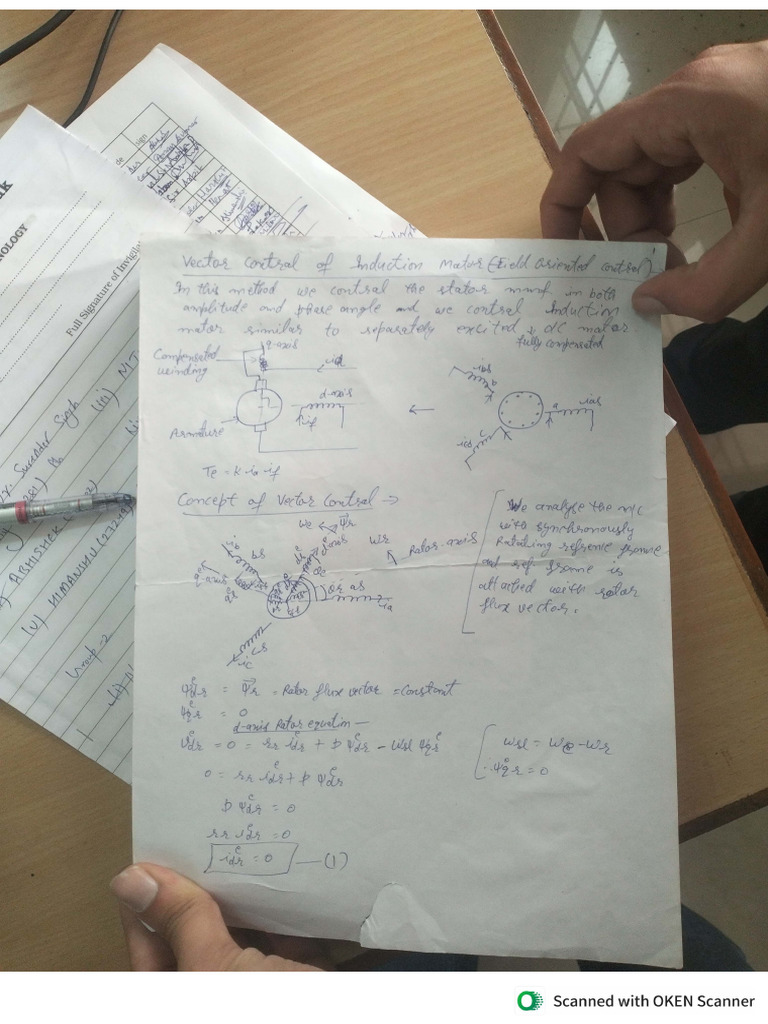 Vector Control of Induction Motor (Field Oriented Control)
In this method we control the stator mmf in both
amplitude and phase angle and we control Induction
motor similar to separately excited & DC motor
fully compensated
q-axis
Compensated
winding
d-axis
if
Armature
ibs
b
a
ias
ics
c
Te = k ia if
Concept of Vector Control →
we
Ψr
d-axis
wr
Rotor-axis
ib
bs
q-axis
θr
as
ia
cs
ic
We analyse the m/c
with synchronously
Rotating refrence frame
and ref frame is
attached with rotor
flux vector.
Ψᵉdr = Ψr = Rotor flux vector = Constant
Ψᵉqr = 0
d-axis Rotor equation —
Vᵉdr = 0 = rr iᵉdr + p Ψᵉdr - wsl Ψᵉqr
wsl = we - wr
∴ Ψᵉqr = 0
0 = rr iᵉdr + p Ψᵉdr
p Ψᵉdr = 0
rr iᵉdr = 0
iᵉdr = 0 — (1)
NOLOGY
Full Signature of Invigil
Surender Singh
(iii) MJ
ABHISHEK
(v) HIMANSHU (27249)
Group-2
Scanned with OKEN Scanner